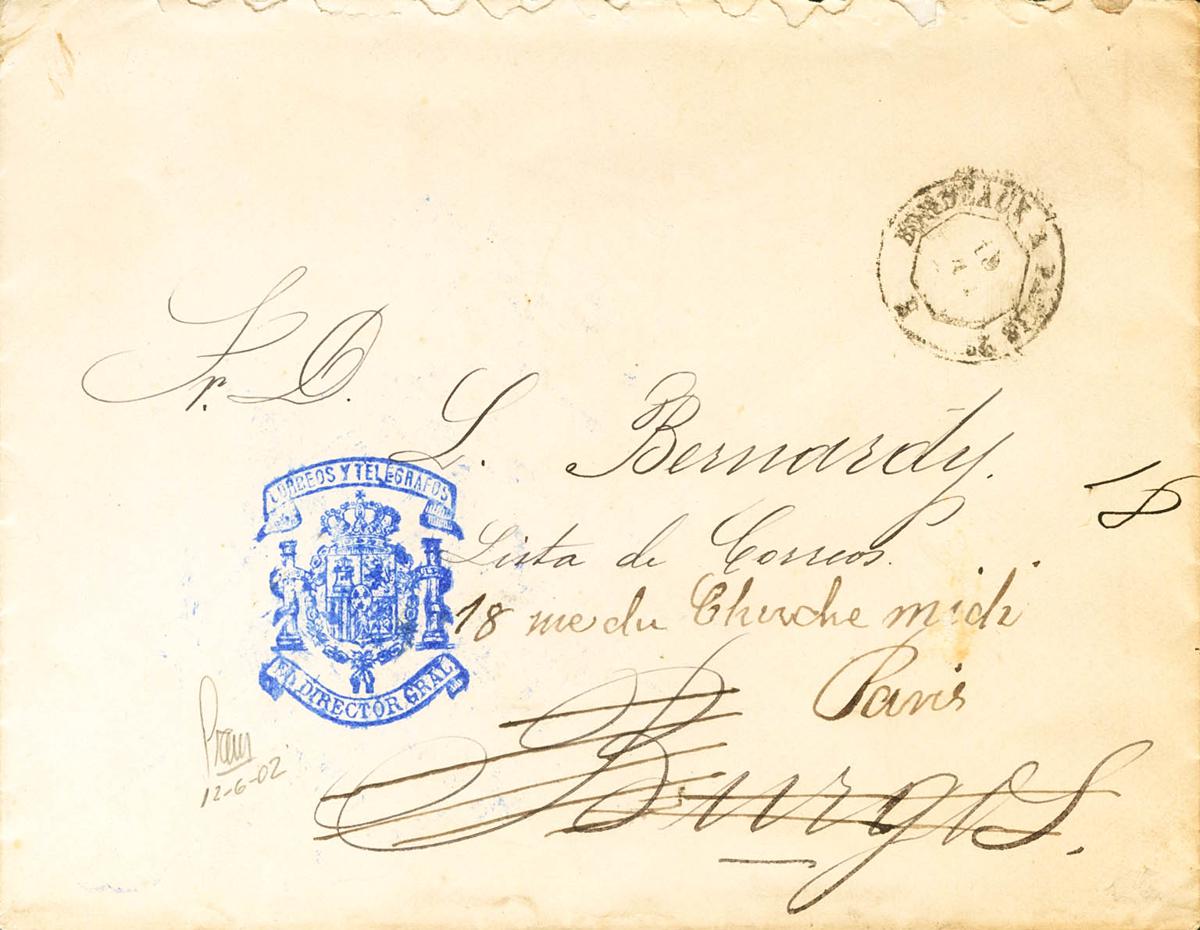 BORDEAUX A PARIS 2º
Sr. D.
L. Bernardy.
CORREOS Y TELEGRAFOS
Lista de Correos.
18 rue du Cherche midi
Paris
EL DIRECTOR GRAL
12-6-02
Burgos.